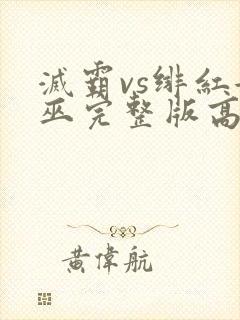 滅霸vs绯紅女
巫完整版高
黃偉航